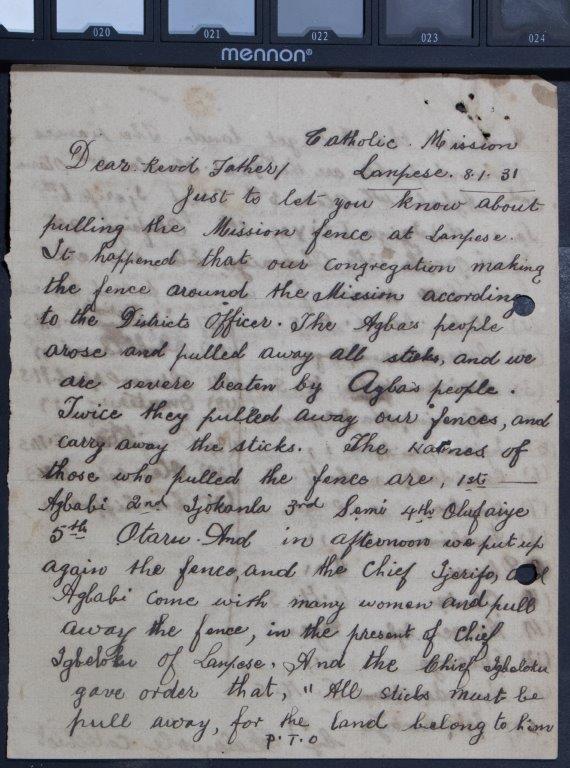 020 021 022 023 024
mennon®
Catholic Mission
Dear Revd Father/ Lanpese. 8.1.31
Just to let you know about
pulling the Mission fence at Lanpese.
It happened that our congregation making
the fence around the Mission according
to the Districts Officer. The Agbas people
arose and pulled away all sticks, and we
are severe beaten by Agbas people.
Twice they pulled away our fences, and
carry away the sticks. The Names of
those who pulled the fence are, 1st
Agbabi 2nd Ijokanla 3rd Semi 4th Olufaiye
5th Otaru. And in afternoon we put up
again the fence, and the Chief Ijerifo, and
Agbabi come with many women and pull
away the fence, in the present of Chief
Igbeloku of Lanpese. And the Chief Igbeloku
gave order that, "All sticks must be
pull away, for the land belong to him
P.T.O